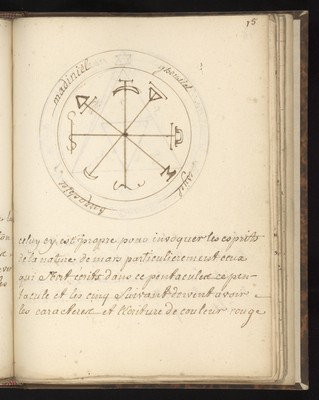 15
madiniel
celuy cy est propre pour invoquer les esprits
de la nature de mars particulierement ceux
qui sont écrits dans ce pentacule ce pen-
tacule et les cinq suivant doivent avoir
les caracteres et l'écriture de couleur rouge